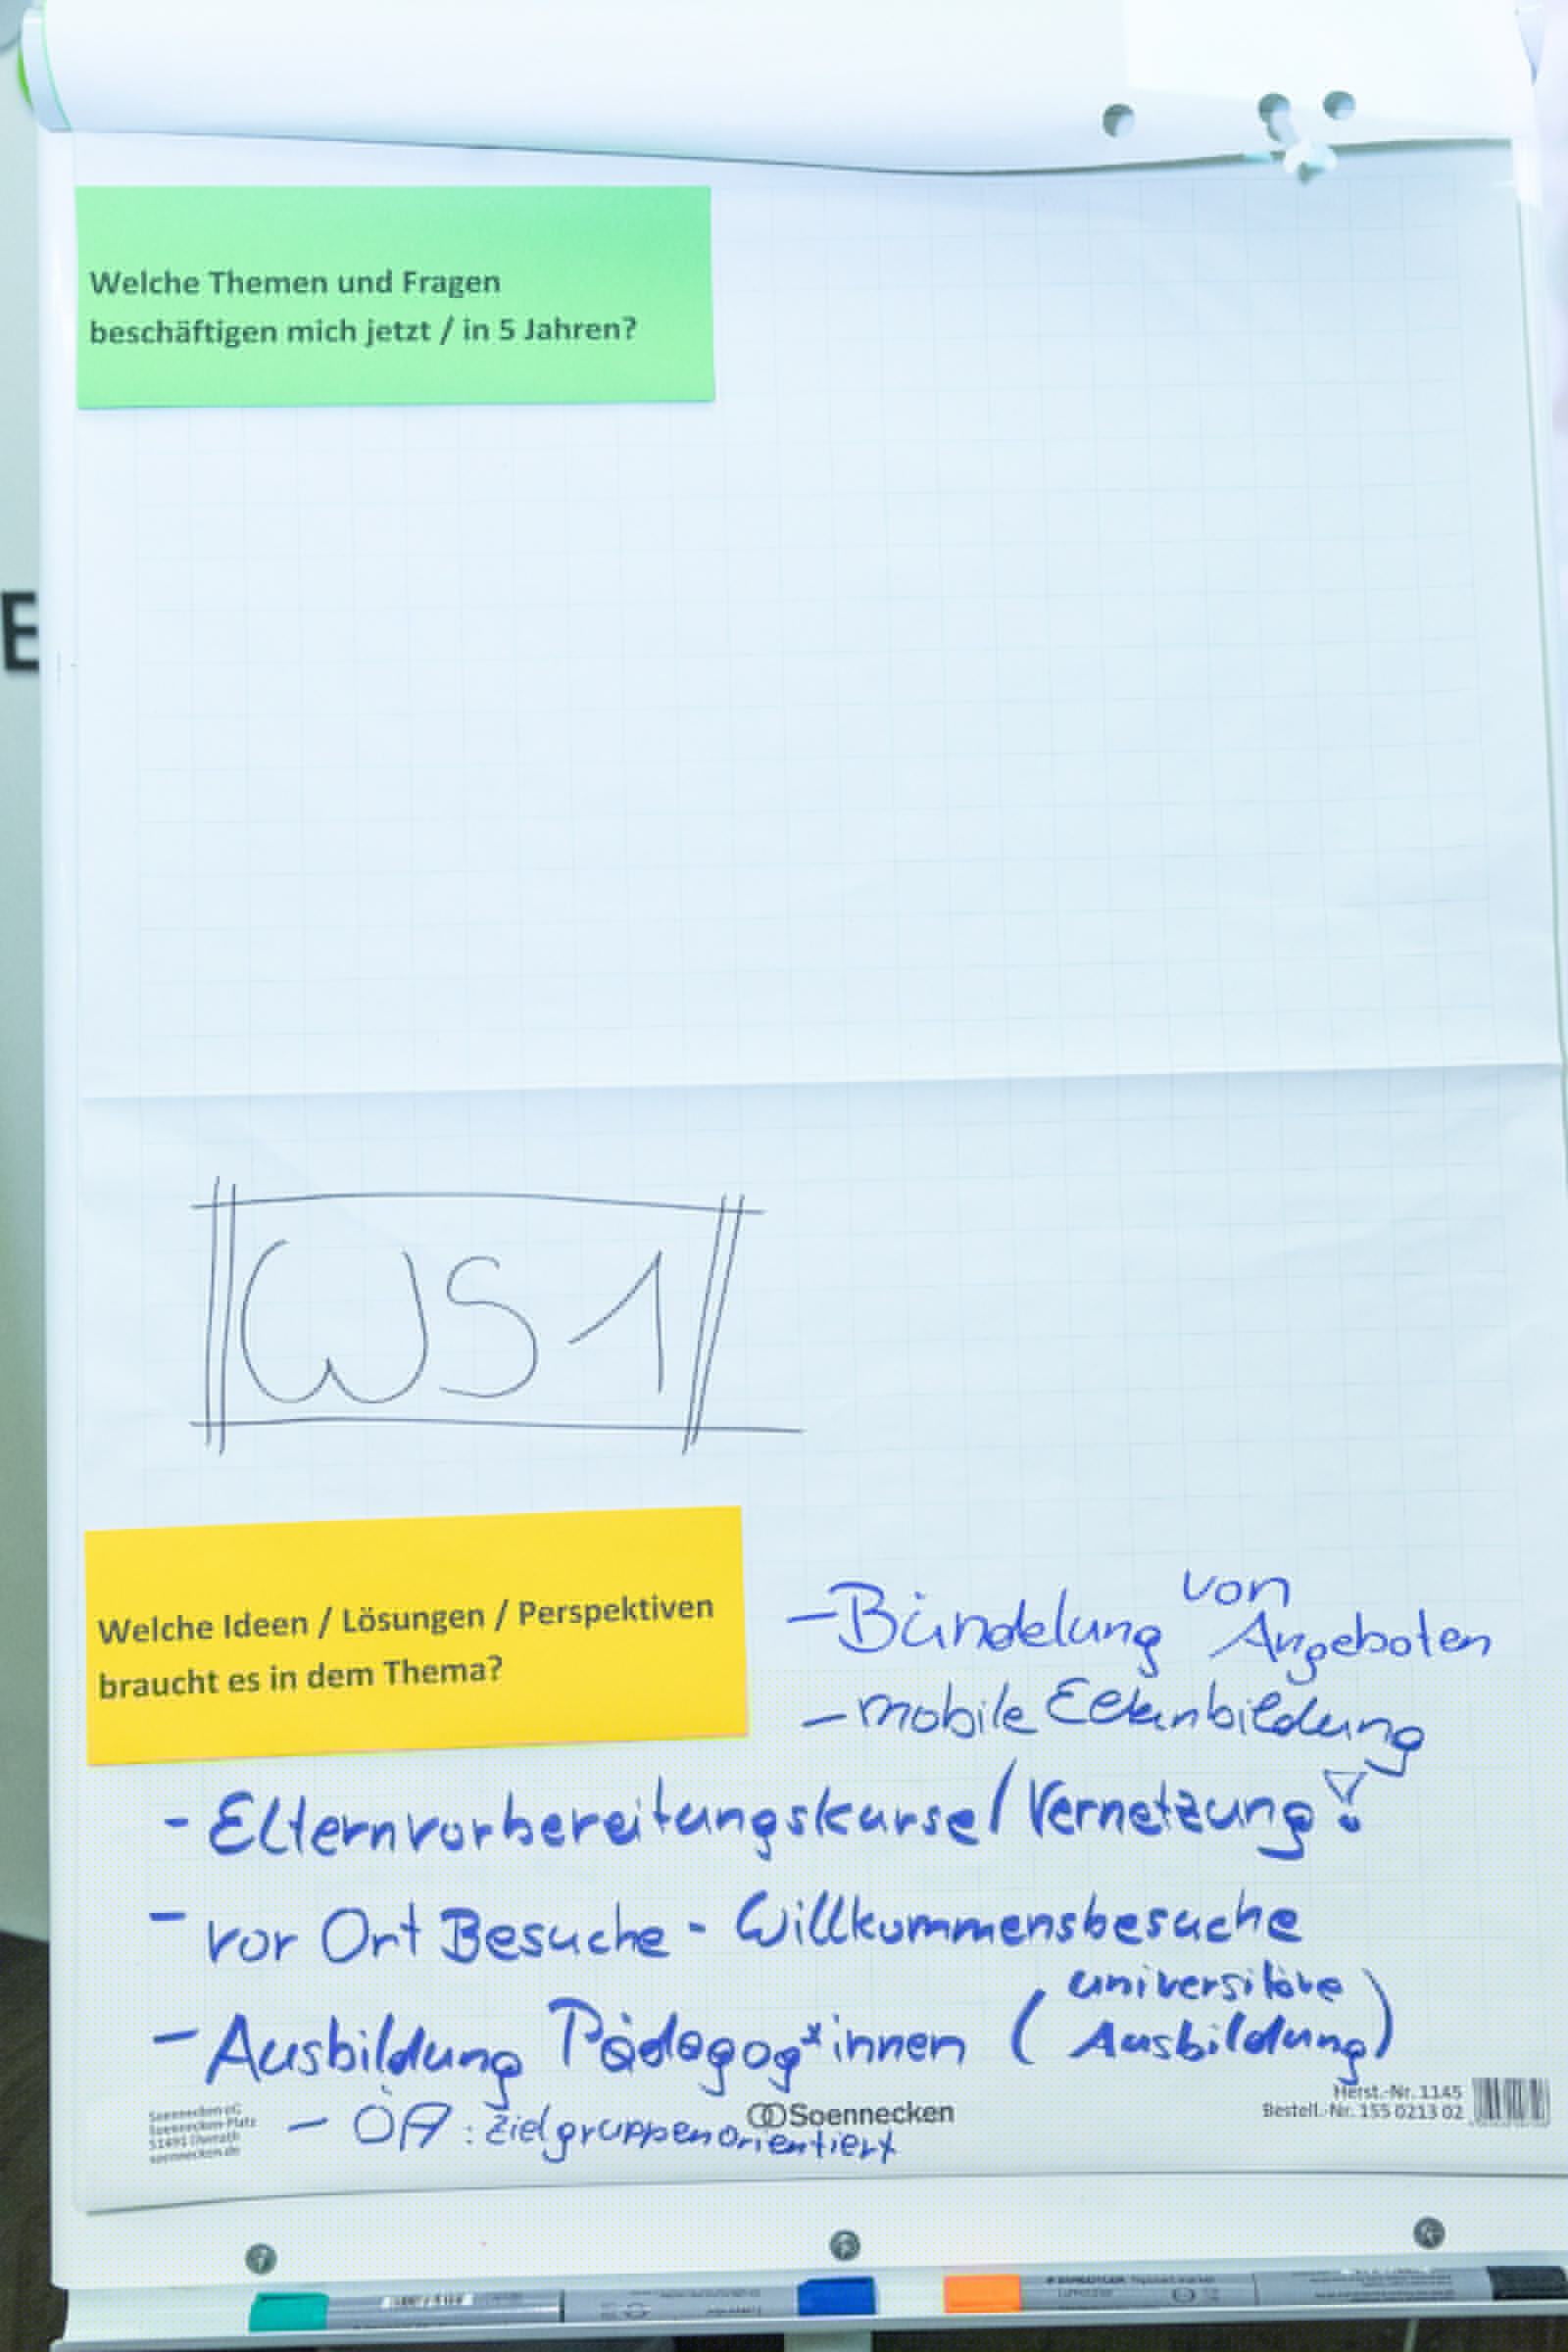 Welche Themen und Fragen
beschäftigen mich jetzt / in 5 Jahren?
E
WS 1
Welche Ideen / Lösungen / Perspektiven
braucht es in dem Thema?
- Bündelung von Angeboten
- mobile Elternbildung
- Elternvorbereitungskurse / Vernetzung!
- vor Ort Besuche - Willkommensbesuche
- Ausbildung Pädagog*innen (universitäre Ausbildung)
- ÖA : zielgruppenorientiert
Soennecken eG
Soennecken-Platz
51491 Overath
soennecken.de
Soennecken
Herst.-Nr. 1145
Bestell.-Nr. 155 0213 02